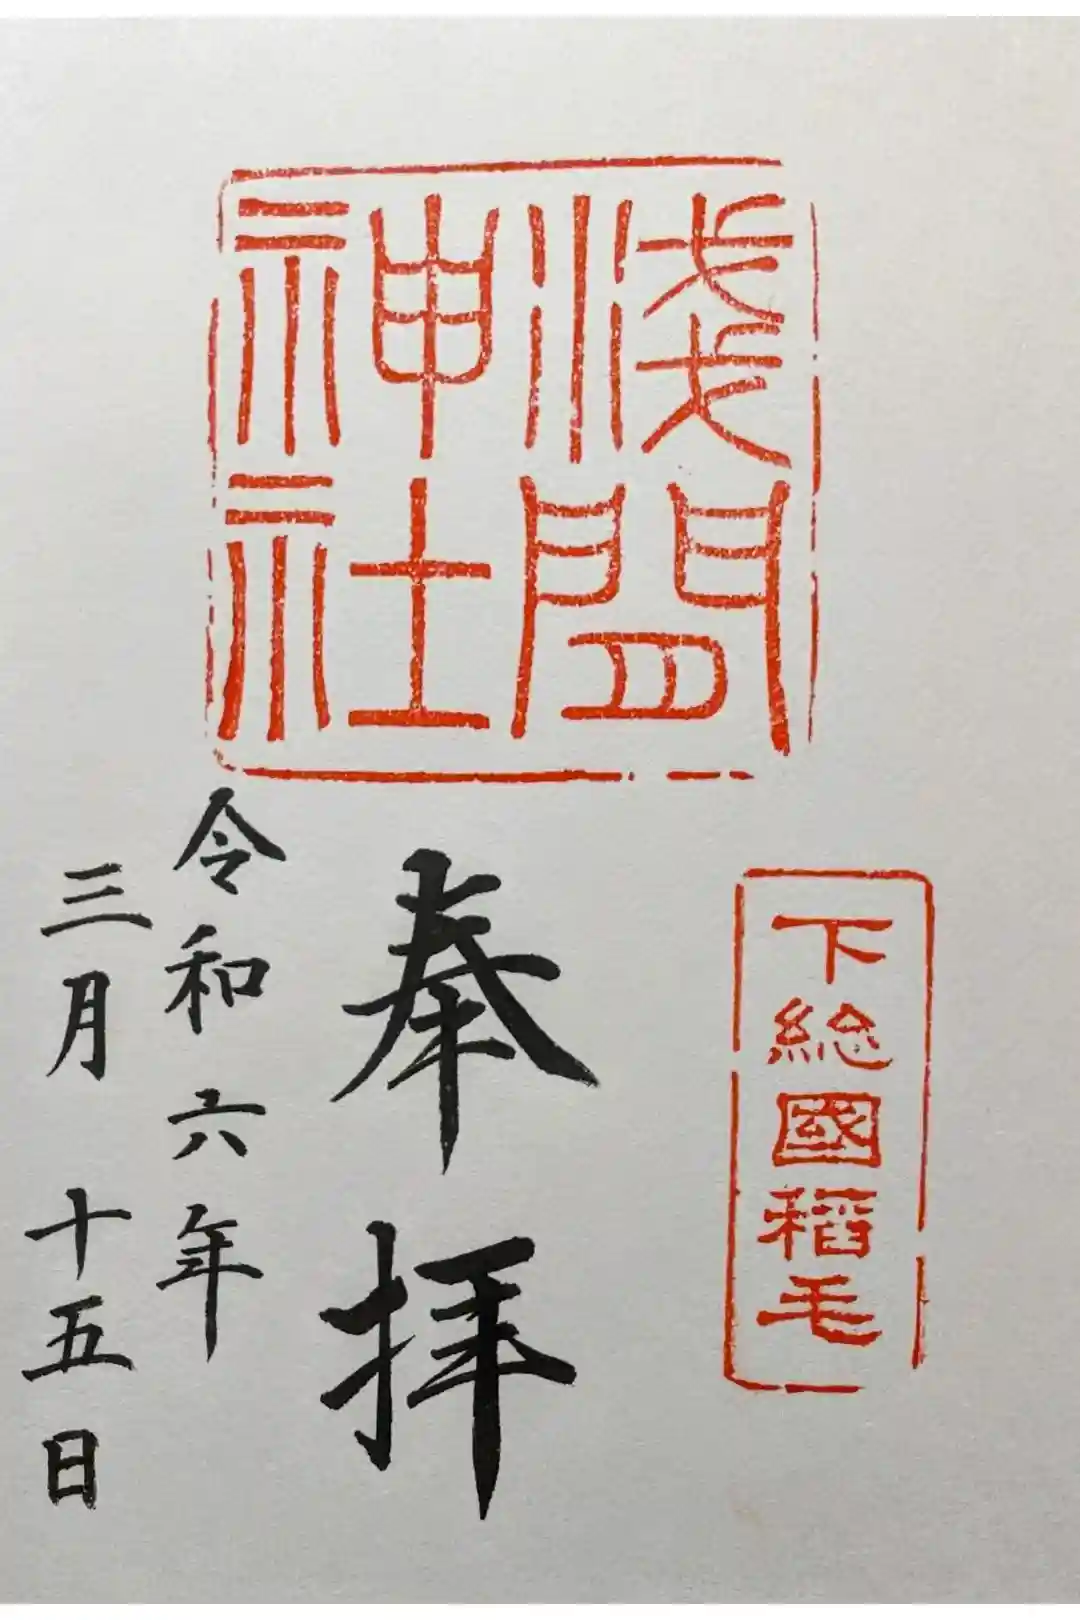 淺間
神社
下総國稻毛
奉拝
令和六年
三月十五日